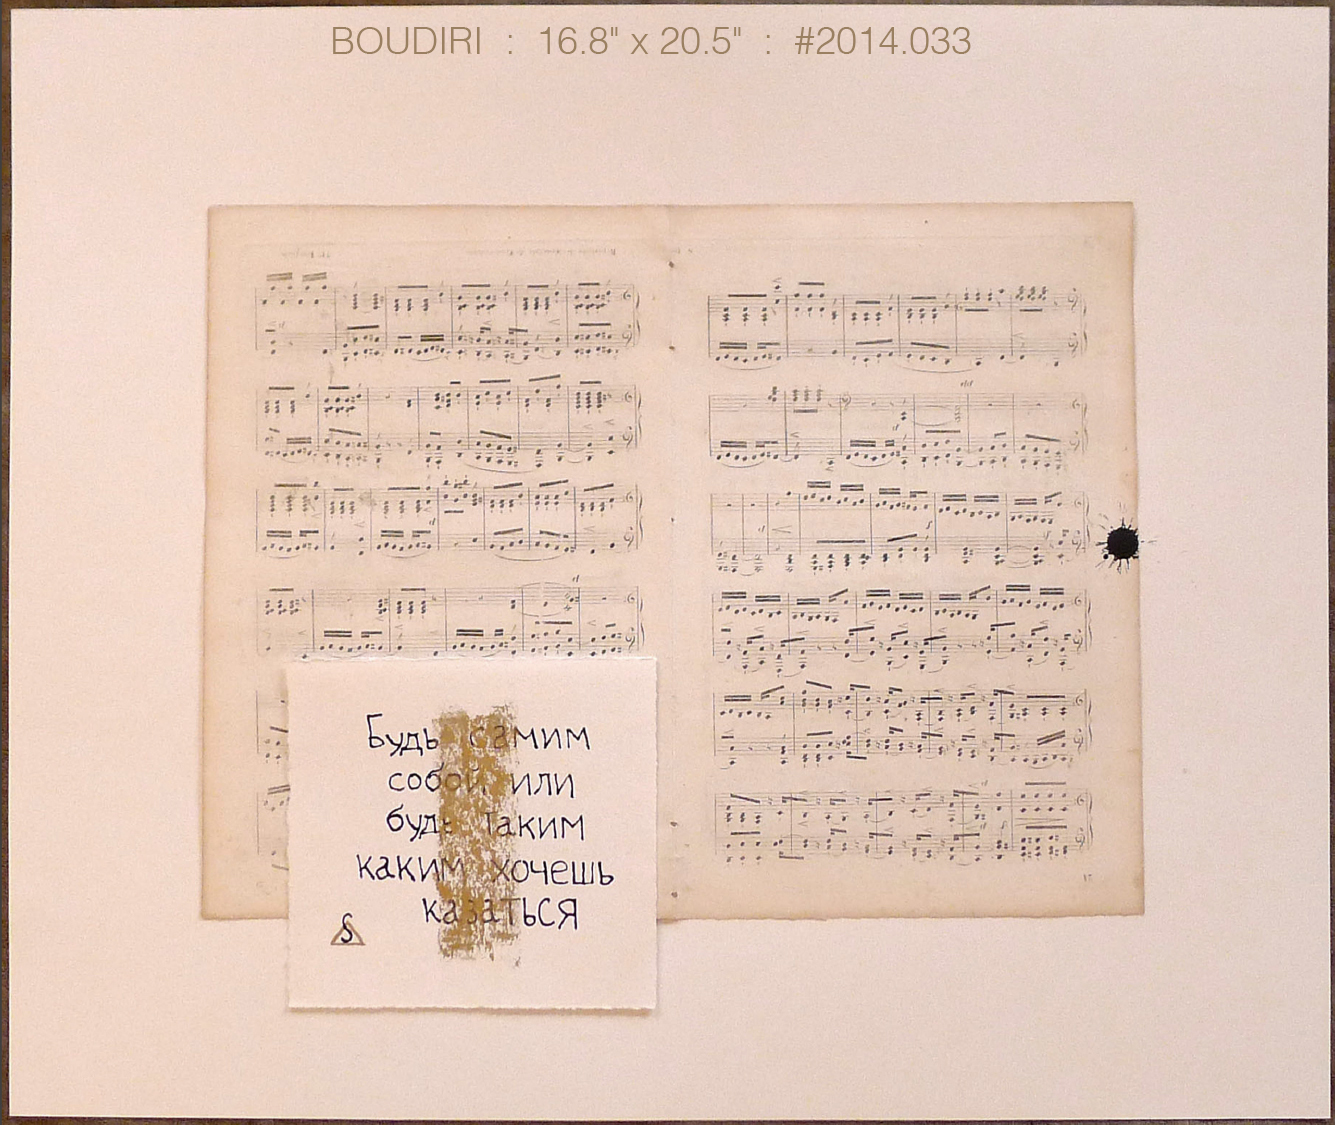 BOUDIRI : 16.8" x 20.5" : #2014.033
Будь самим
собой или
будь таким
каким хочешь
казаться